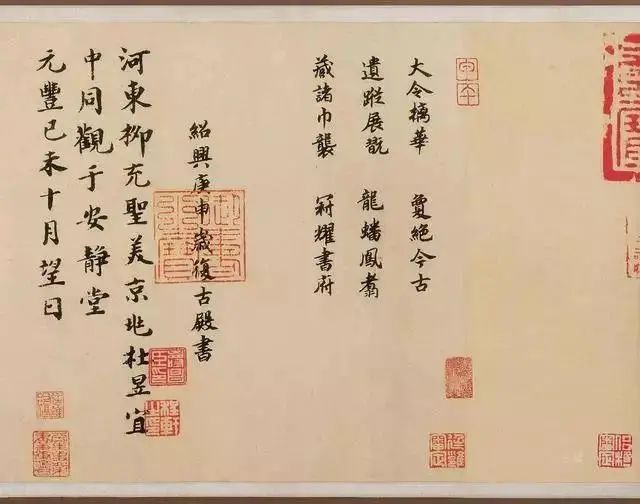 大令摛華 敻絕今古
遺蹤展翫 龍蟠鳳翥
藏諸巾襲 冠耀書府
紹興庚申歲復古殿書
河東柳充聖美京兆杜昱宜
中同觀于安靜堂
元豐己未十月望日